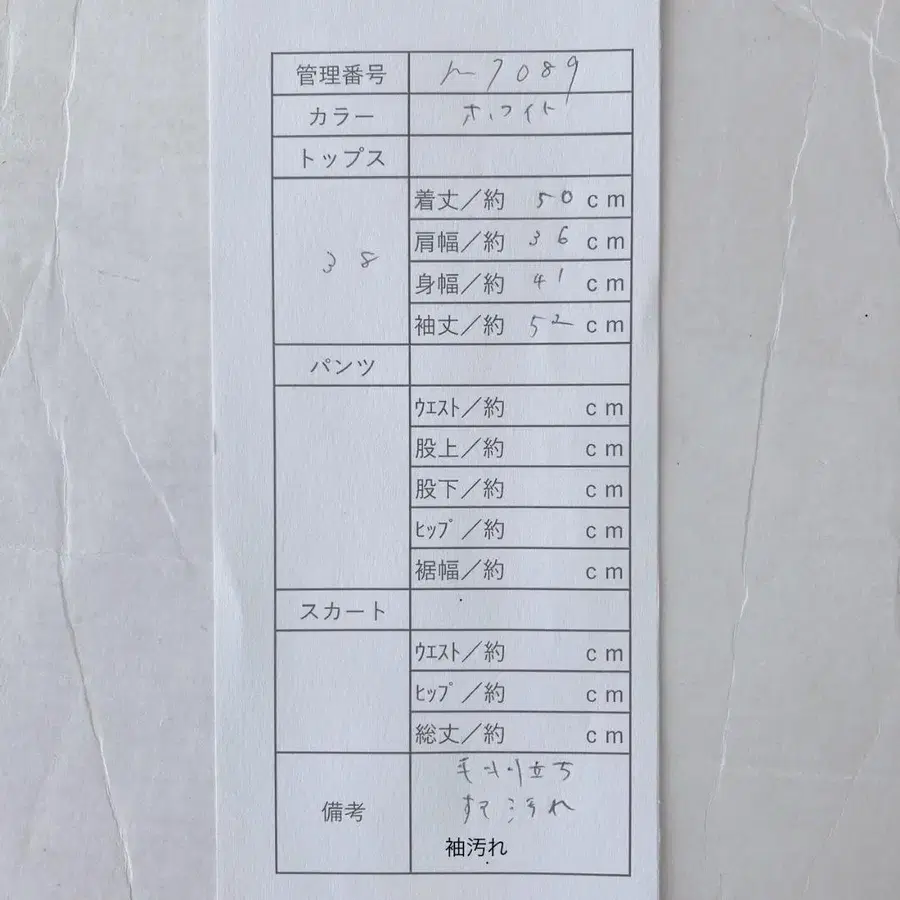 管理番号 h7089
カラー ホワイト
トップス
38
着丈／約 50 cm
肩幅／約 36 cm
身幅／約 41 cm
袖丈／約 52 cm
パンツ
ウエスト／約 cm
股上／約 cm
股下／約 cm
ヒップ／約 cm
裾幅／約 cm
スカート
ウエスト／約 cm
ヒップ／約 cm
総丈／約 cm
備考
毛羽立ち
汚れ
袖汚れ